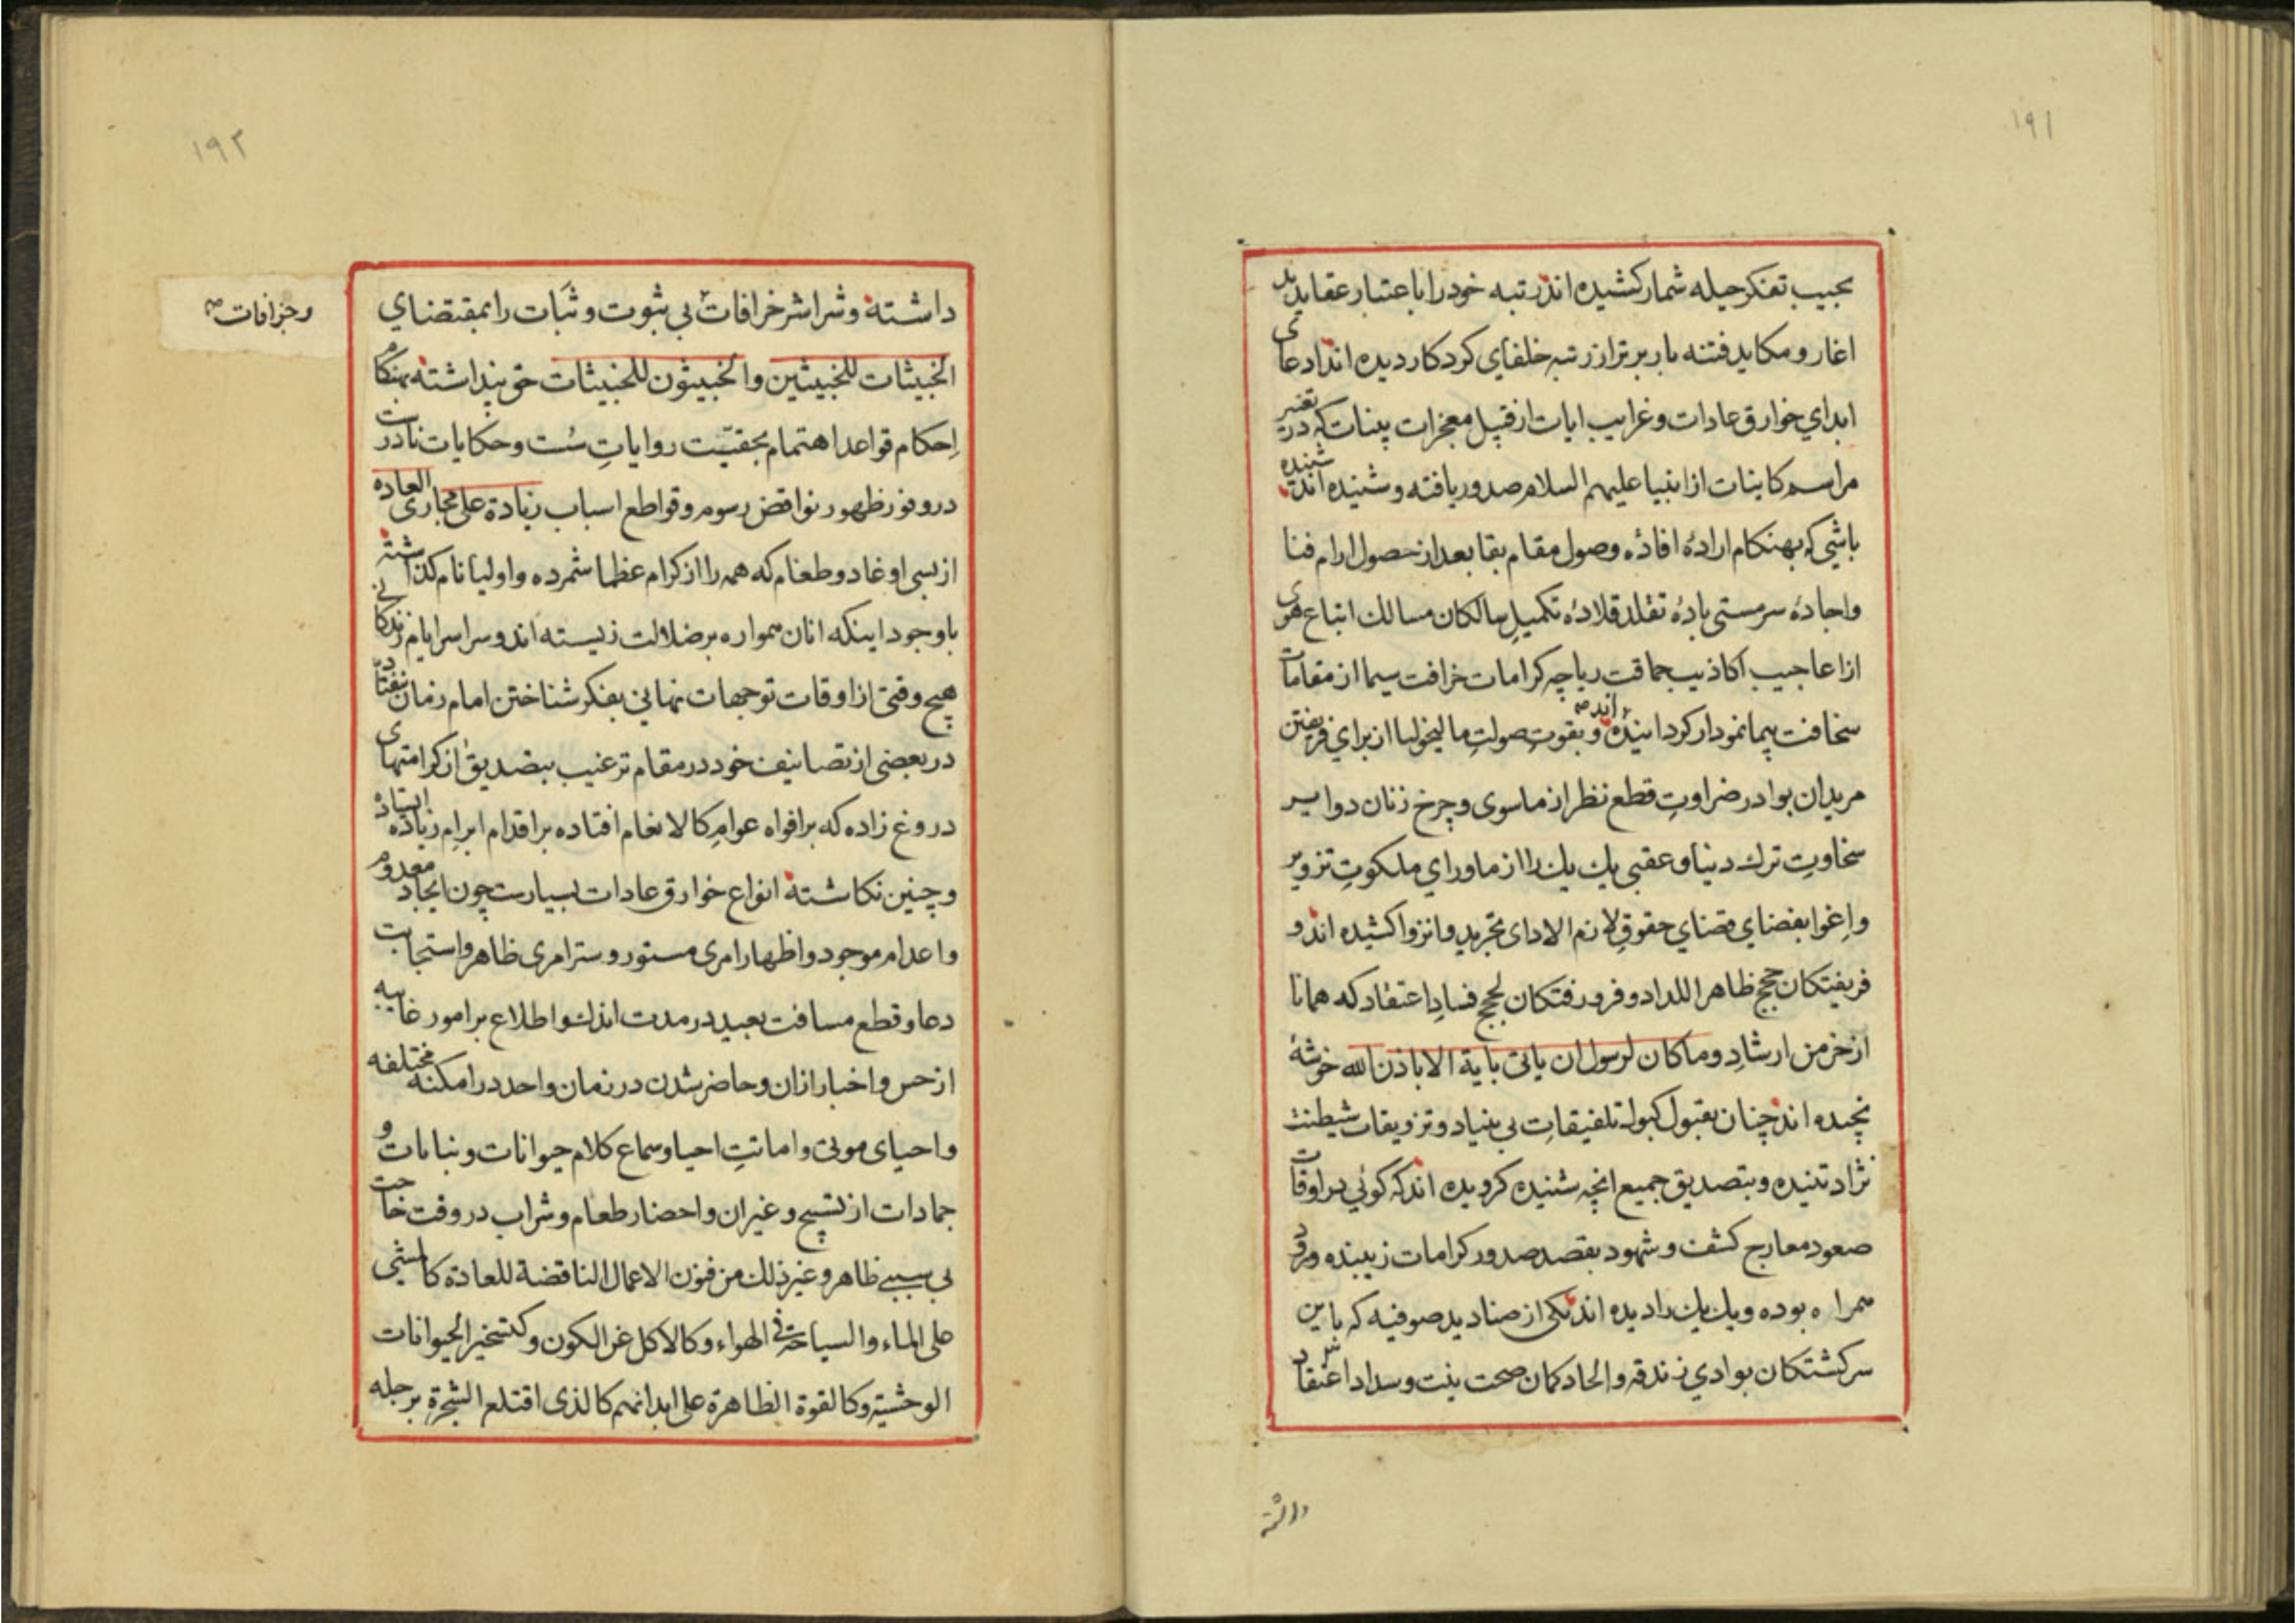 ۱۹۱
بجیب تفکر حیله شمار کشیده اند رتبه خود را باعتبار عقاید بد
اغار و مکاید فتنه بار برتر از رتبه خلفای کردکار دیده اند ادعای
ابدای خوارق عادات و غرایب ایات از قپیل معجزات پینات که در تغییر
مراسم کاینات از انبیا علیهم السلام صدور یافته و شنیده اند شنیده
باشی که بهنکام ارادهٔ افادهٔ وصول مقام بقا بعد از حصول ارام فنا
واجادهٔ سرمستی بادهٔ تقلد قلادهٔ تکمیلِ سالکان مسالك اتباع هوی
از اعاجیب اکاذیب حماقت ریاچه کرامات خرافت سیما از مقامات
سخافت پیما نمودار کردانیدهٔ اند و بقوتِ صولتِ مالیخولیا از برای فریفتن
مریدان بوادر ضراوتِ قطع نظر از ماسوی و چرخ زنان دوایر
سخاوتِ ترك دنیا و عقبی یك یك را از ماورای ملکوتِ تزویر
واِغوا بفضای قضای حقوقِ لازم الادای تجرید و انزوا کشیده اند و
فریفتکان حججِ ظاهر اللداد و فرو رفتکان لججِ فسادِ اعتقاد که همانا
از خرمن ارشادِ وماکان لرسول ان یاتی بایة الا باذن الله خوشهٔ
نچیده اند چنان بقبول کبوله تلفیقاتِ بی بنیاد و تزویقات شیطنت
نژاد تنیده و بتصدیق جمیع انچه شنیده کرویده اند که کوئی در اوقات
صعود معارج کشف و شهود بقصد صدور کرامات زیبنده ورود
همراه بوده و یك یك را دیده اند یکی از صنادید صوفیه که باین
سرکشتکان بوادی زندقه و الحاد کمان صحت نیت و سداد اعتقاد
داشته
۱۹۲
داشته و شراشر خرافات بی ثبوت و ثَبات را بمقتضای
و خزافات صح
الخبیثات للخبیثین والخبیثون للخبیثات حق پنداشته بهنکام
اِحکام قواعد اهتمام بحقیّت روایاتِ سُست و حکایات نادرست
در وفور ظهور نواقض رسوم و قواطع اسباب زیادة علی مجاری العاده
از بسی اوغاد و طغام که همه را از کرام عظما شمرده و اولیا نام کذاشته
باوجود اینکه انان همواره بر ضلالت زیسته اند و سراسر ایام زندکانی
هیچ وقتی از اوقات توجهات نهانی بفکر شناختن امام زمان نیفتاد
در بعضی از تصانیف خود در مقام ترغیب بتصدیق از کرامتهای
دروغ زاده که بر افواه عوامِ کالانعام افتاده بر اقدام ابرامِ زیاده ایستاده
و چنین نکاشته انواع خوارق عادات بسیارست چون ایجاد معدوم
و اعدام موجود و اظهار امری مستور و ستر امری ظاهر و استجابت
دعا و قطع مسافت بعید در مدت اندك و اطلاع بر امور غایبه
از حس و اخبار ازان و حاضر شدن در زمان واحد در امکنه مختلفه
و احیای موتی و اماتتِ احیا و سماع کلام حیوانات و نباتات و
جمادات از تسبیح و غیران و احضار طعام و شراب در وقت حاجت
بی سببی ظاهر و غیر ذلك من فنون الاعمال الناقضة للعادة کالمشی
علی الماء والسیاحة فی الهواء و کالاکل عن الکون و کتسخیر الحیوانات
الوحشیة و کالقوة الظاهرة علی ابدانهم کالذی اقتلع الشجرة برجله